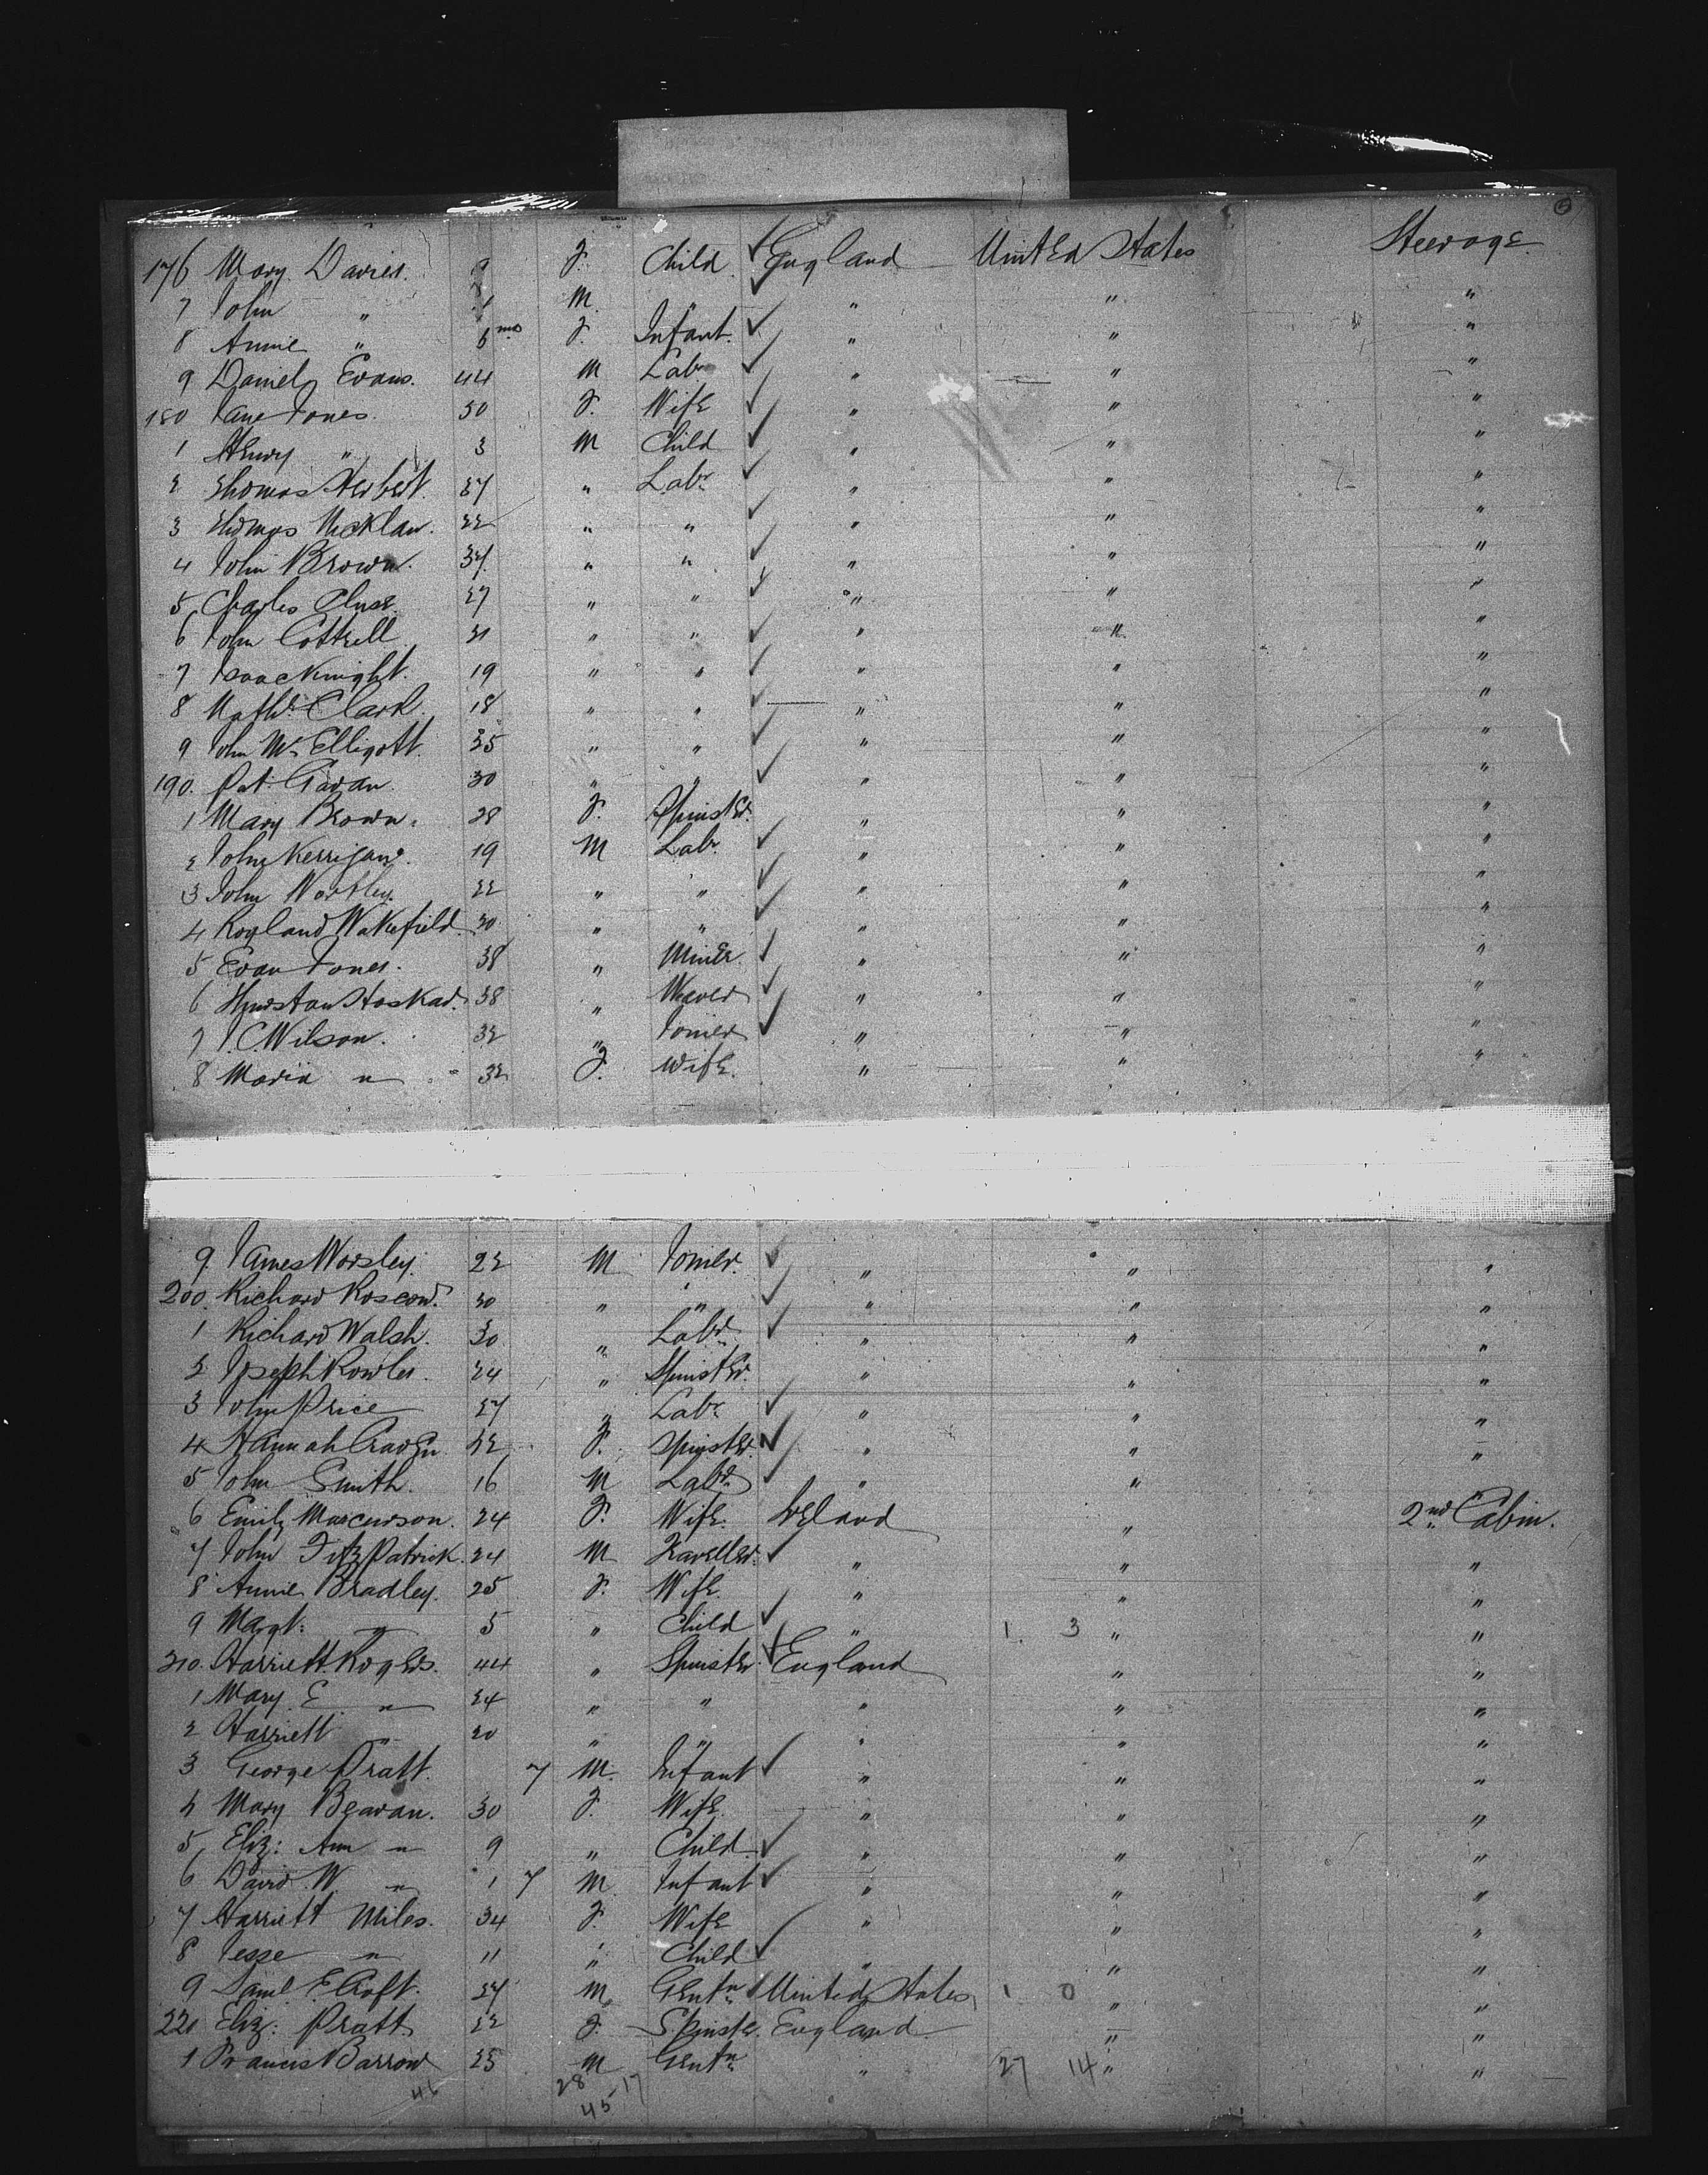 176 Mary Davies. 9 F. Child ✓ England United States Steerage
7 John " M. " ✓ " " "
8 Annie " 6 mos F. Infant. ✓ " " "
9 Daniel Evans. 44 M Labr ✓ " " "
180 Jane Jones. 30 F. Wife ✓ " " "
1 Henry " 3 M Child ✓ " " "
2 Thomas Herbert. 27 " Labr ✓ " " "
3 Thomas 22 " " ✓ " " "
4 John Brown. " " ✓ " " "
5 Charles 27 " " ✓ " " "
6 John Cottrell 21 " " ✓ " " "
7 Isaac Knight. 19 " " ✓ " " "
8 Clark. 18 " " ✓ " " "
9 John McElligott 35 " " ✓ " " "
190. Pat. Gavan. 30 " " ✓ " " "
1 Mary Brown. 28 F. Spinster. " " "
2 John Kerrigan. 19 M Labr ✓ " " "
3 John Wortley. 22 " " ✓ " " "
4 Wakefield. 30 " " ✓ " " "
5 Evan Jones. 38 " Miner ✓ " " "
6 38 " Weaver ✓ " " "
7 J. C. Wilson. 32 " Joiner ✓ " " "
8 Maria " 32 F. Wife. " " "
9 James Worsley. 22 M Joiner. ✓ " " "
200. Richard Roscow. 30 " " ✓ " " "
1 Richard Walsh. 30 " Labr ✓ " " "
2 Joseph Rowles. 24 " Spinster. " " "
3 John Price 27 " Labr ✓ " " "
4 Hannah Craven 22 F. Spinster. ✓ " " "
5 John Smith. 16 M Labr ✓ " " "
6 Emily Marcurson. 24 F. Wife. Ireland " 2nd Cabin.
7 John Fitzpatrick. 24 M Traveller. ✓ " " "
8 Annie Bradley. 25 F. Wife. " " "
9 Margt: " 5 " Child ✓ " 1. 3 " "
210. Harriett Rogers. 44 " Spinster ✓ England " "
1 Mary E " 24 " " " " "
2 Harriett " 20 " " " " "
3 George Pratt. 7 M. Infant ✓ " " "
4 Mary Beavan. 30 F. Wife. " " "
5 Eliz: Ann " 9 " Child. ✓ " " "
6 David W " 1 7 M. Infant ✓ " " "
7 Harriett Miles. 34 F. Wife " " "
8 Jesse " 11 " Child ✓ " " "
9 Saml E. Croft. 27 M. Gentn United States 1 0 " "
220 Eliz: Pratt. 22 F. Spinster. England " "
1 Francis Barrow 25 M Gentn " 27 14 " "
46 28 17
45